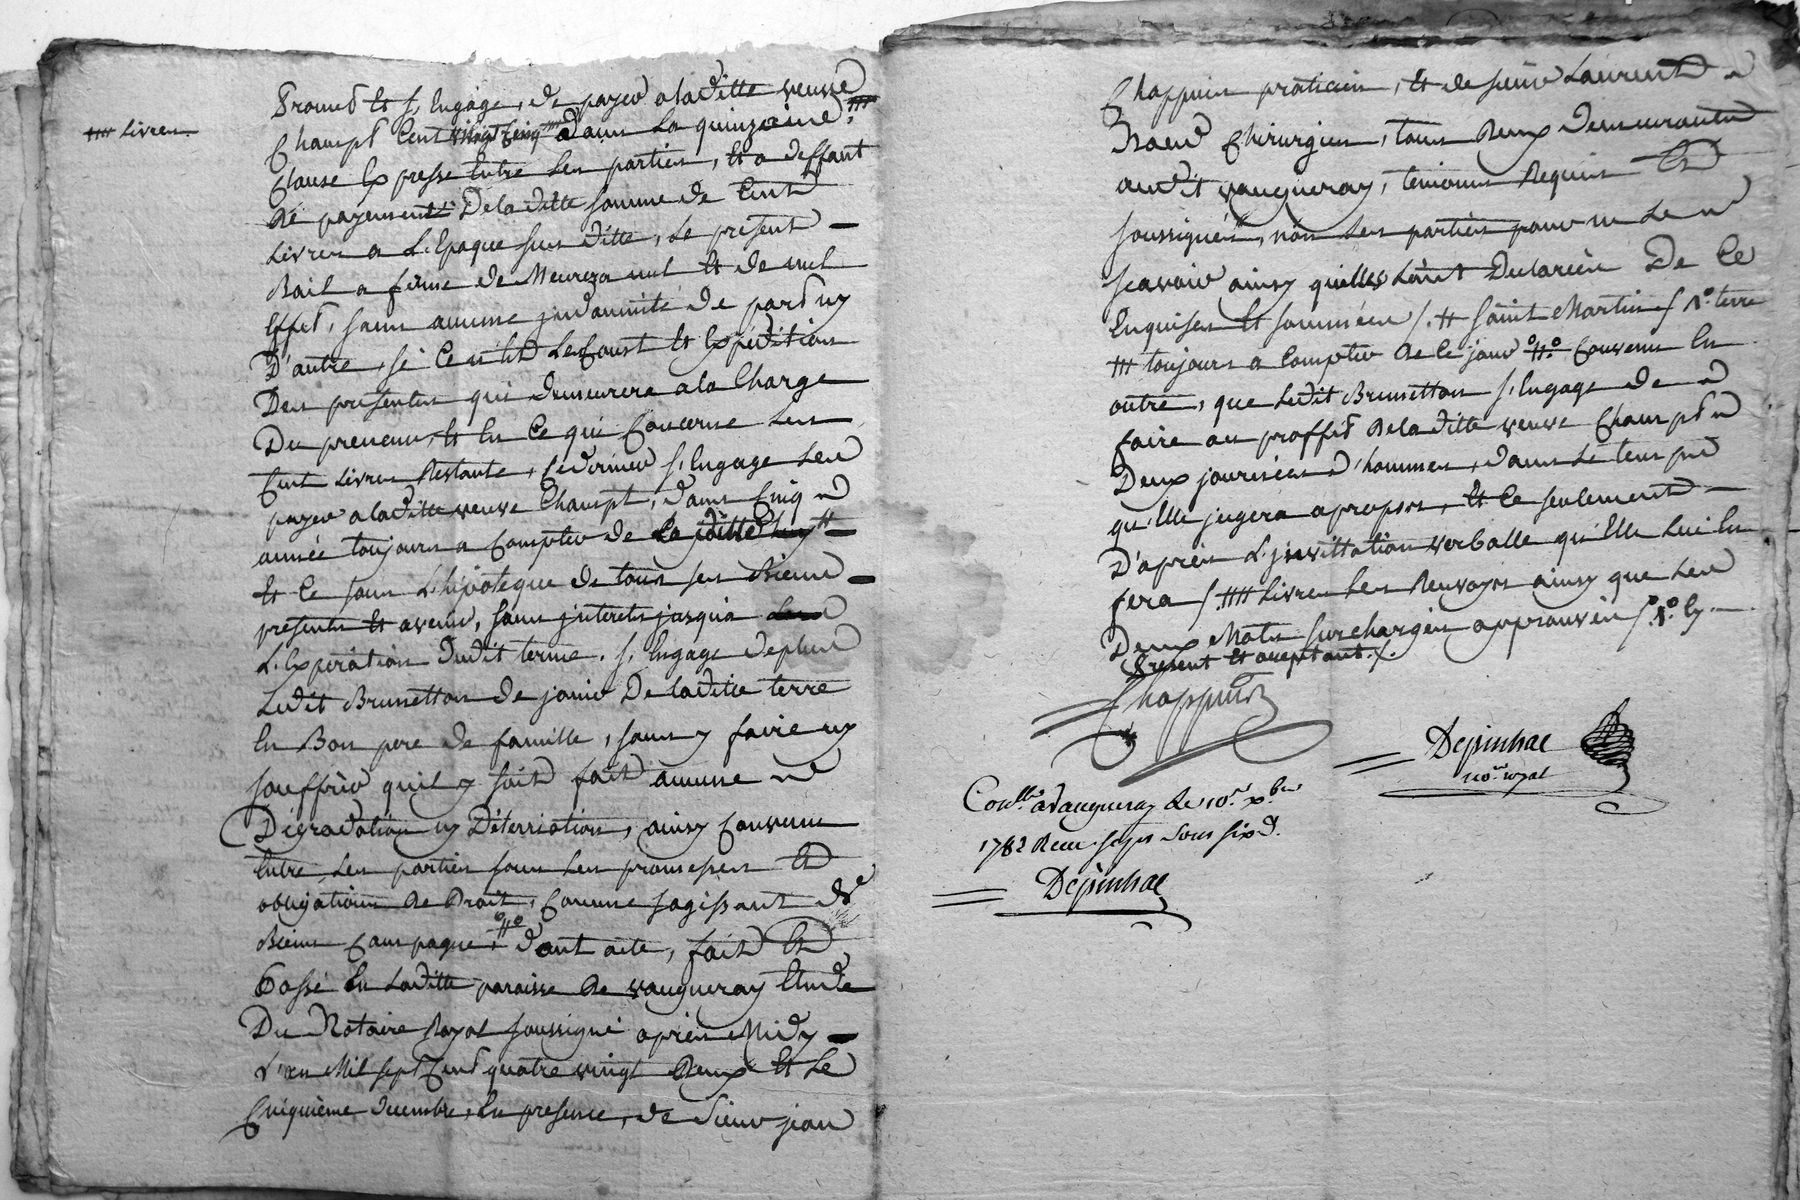 ## livres
Promet et s'engage, de payer a laditte veuve
Champt Cent vingt cinq ## dans la quinzaine, ##
Clause Expresse Entre les parties, et a deffaut
de payement de laditte somme de Cent
Livres a L'Epoque sus ditte, Le present
Bail a ferme demeurera nul et de nul
Effet, sans aucune jndamnité de part ny
D'autre, si ce n'Est Les Coust et Expédition
Des presentes qui demeurera a la Charge
Du preneur, et En Ce qui Concerne Les
Cent Livres Restante, Ce dernier s'Engage Les
payer a laditte veuve Champt, dans Cinq
année toujours a Compter de #
et Ce sous L'hipoteque de tous ses Biens
presents et avenir, sans jnterets jusqu'a
L'Expiration dudit terme. s'Engage deplus
Ledit Brunetton de jouir De laditte terre
En Bon pere de famille, sans y faire ny
souffrir quil y soit fait aucune
Dégradation ny Déterriation, ainsy Convenu
Entre Les parties sous Les promesses et
obligations de Droit, Comme sagissant de
Biens Campagne, °#° dont acte, fait et
Passé En Laditte paroisse de vaugneray Etude
Du Notaire Royal soussigné après Midy
L'an Mil sept Cent quatre vingt Deux et Le
Cinquième decembre, En presence, de Sieur jean
Chappuis praticien, et de sieur Laurent
chirurgien, tous deux demeurants
audit vaugneray, temoins Requis et
soussignés, non Les parties pour ne Le
scavoir ainsy quelles L'ont Declarées De Ce
Enquises et sommées /. # saint Martin / 1.° terre
### toujours a Compter de Ce jour °#° Convenu En
outre, que Ledit Brunetton s'Engage de
faire au proffit de laditte veuve Champt
Deux journées d'hommes, dans Le tems
qu'Elle jugera apropos, et Ce seulement
D'après L'jnvittation verballe qu'Elle Lui En
fera /. #### Livres Les Renvoys ainsy que Les
Deux Mots surchargés approuvés /. 1.° Cy
present et aceptant ./.
Chappuis
Depinhac
no.re royal
Con.lle a Vaugneray Le 10.e x.bre
1782 Reçu sols six d.
Depinhac